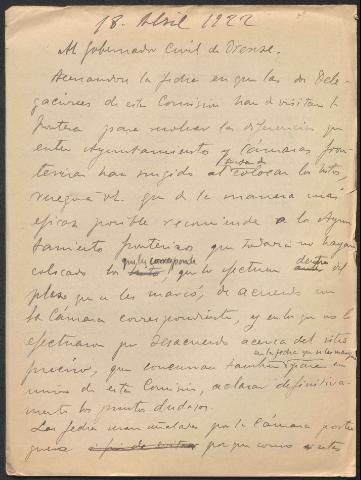 18. Abril 1922
Al Gobernador Civil de Orense.
Acercandose la fecha en que las dos Dele-
gaciones de esta Comision han de visitar la
frontera para resolver las diferencias que
entre Ayuntamientos y Cámaras fron-
terizas han surgido al colocar los hitos
ruego a V. que de la manera mas
eficaz posible recomiende a lo Ayun-
tamiento fronterizos que todavia no hayan
colocado los que les corresponde que lo efectuen dentro del
plazo que se les marcó, de acuerdo con
la Cámara correspondiente, y en lo que no lo
efectuaron por desacuerdo acerca del sitio
preciso, que concurran tambien a la fecha que se les marque para en
union de esta Comisión, aclarar definitiva-
mente los puntos dudosos.
Las fechas seran señaladas por la Cámara portu
guesa porque como